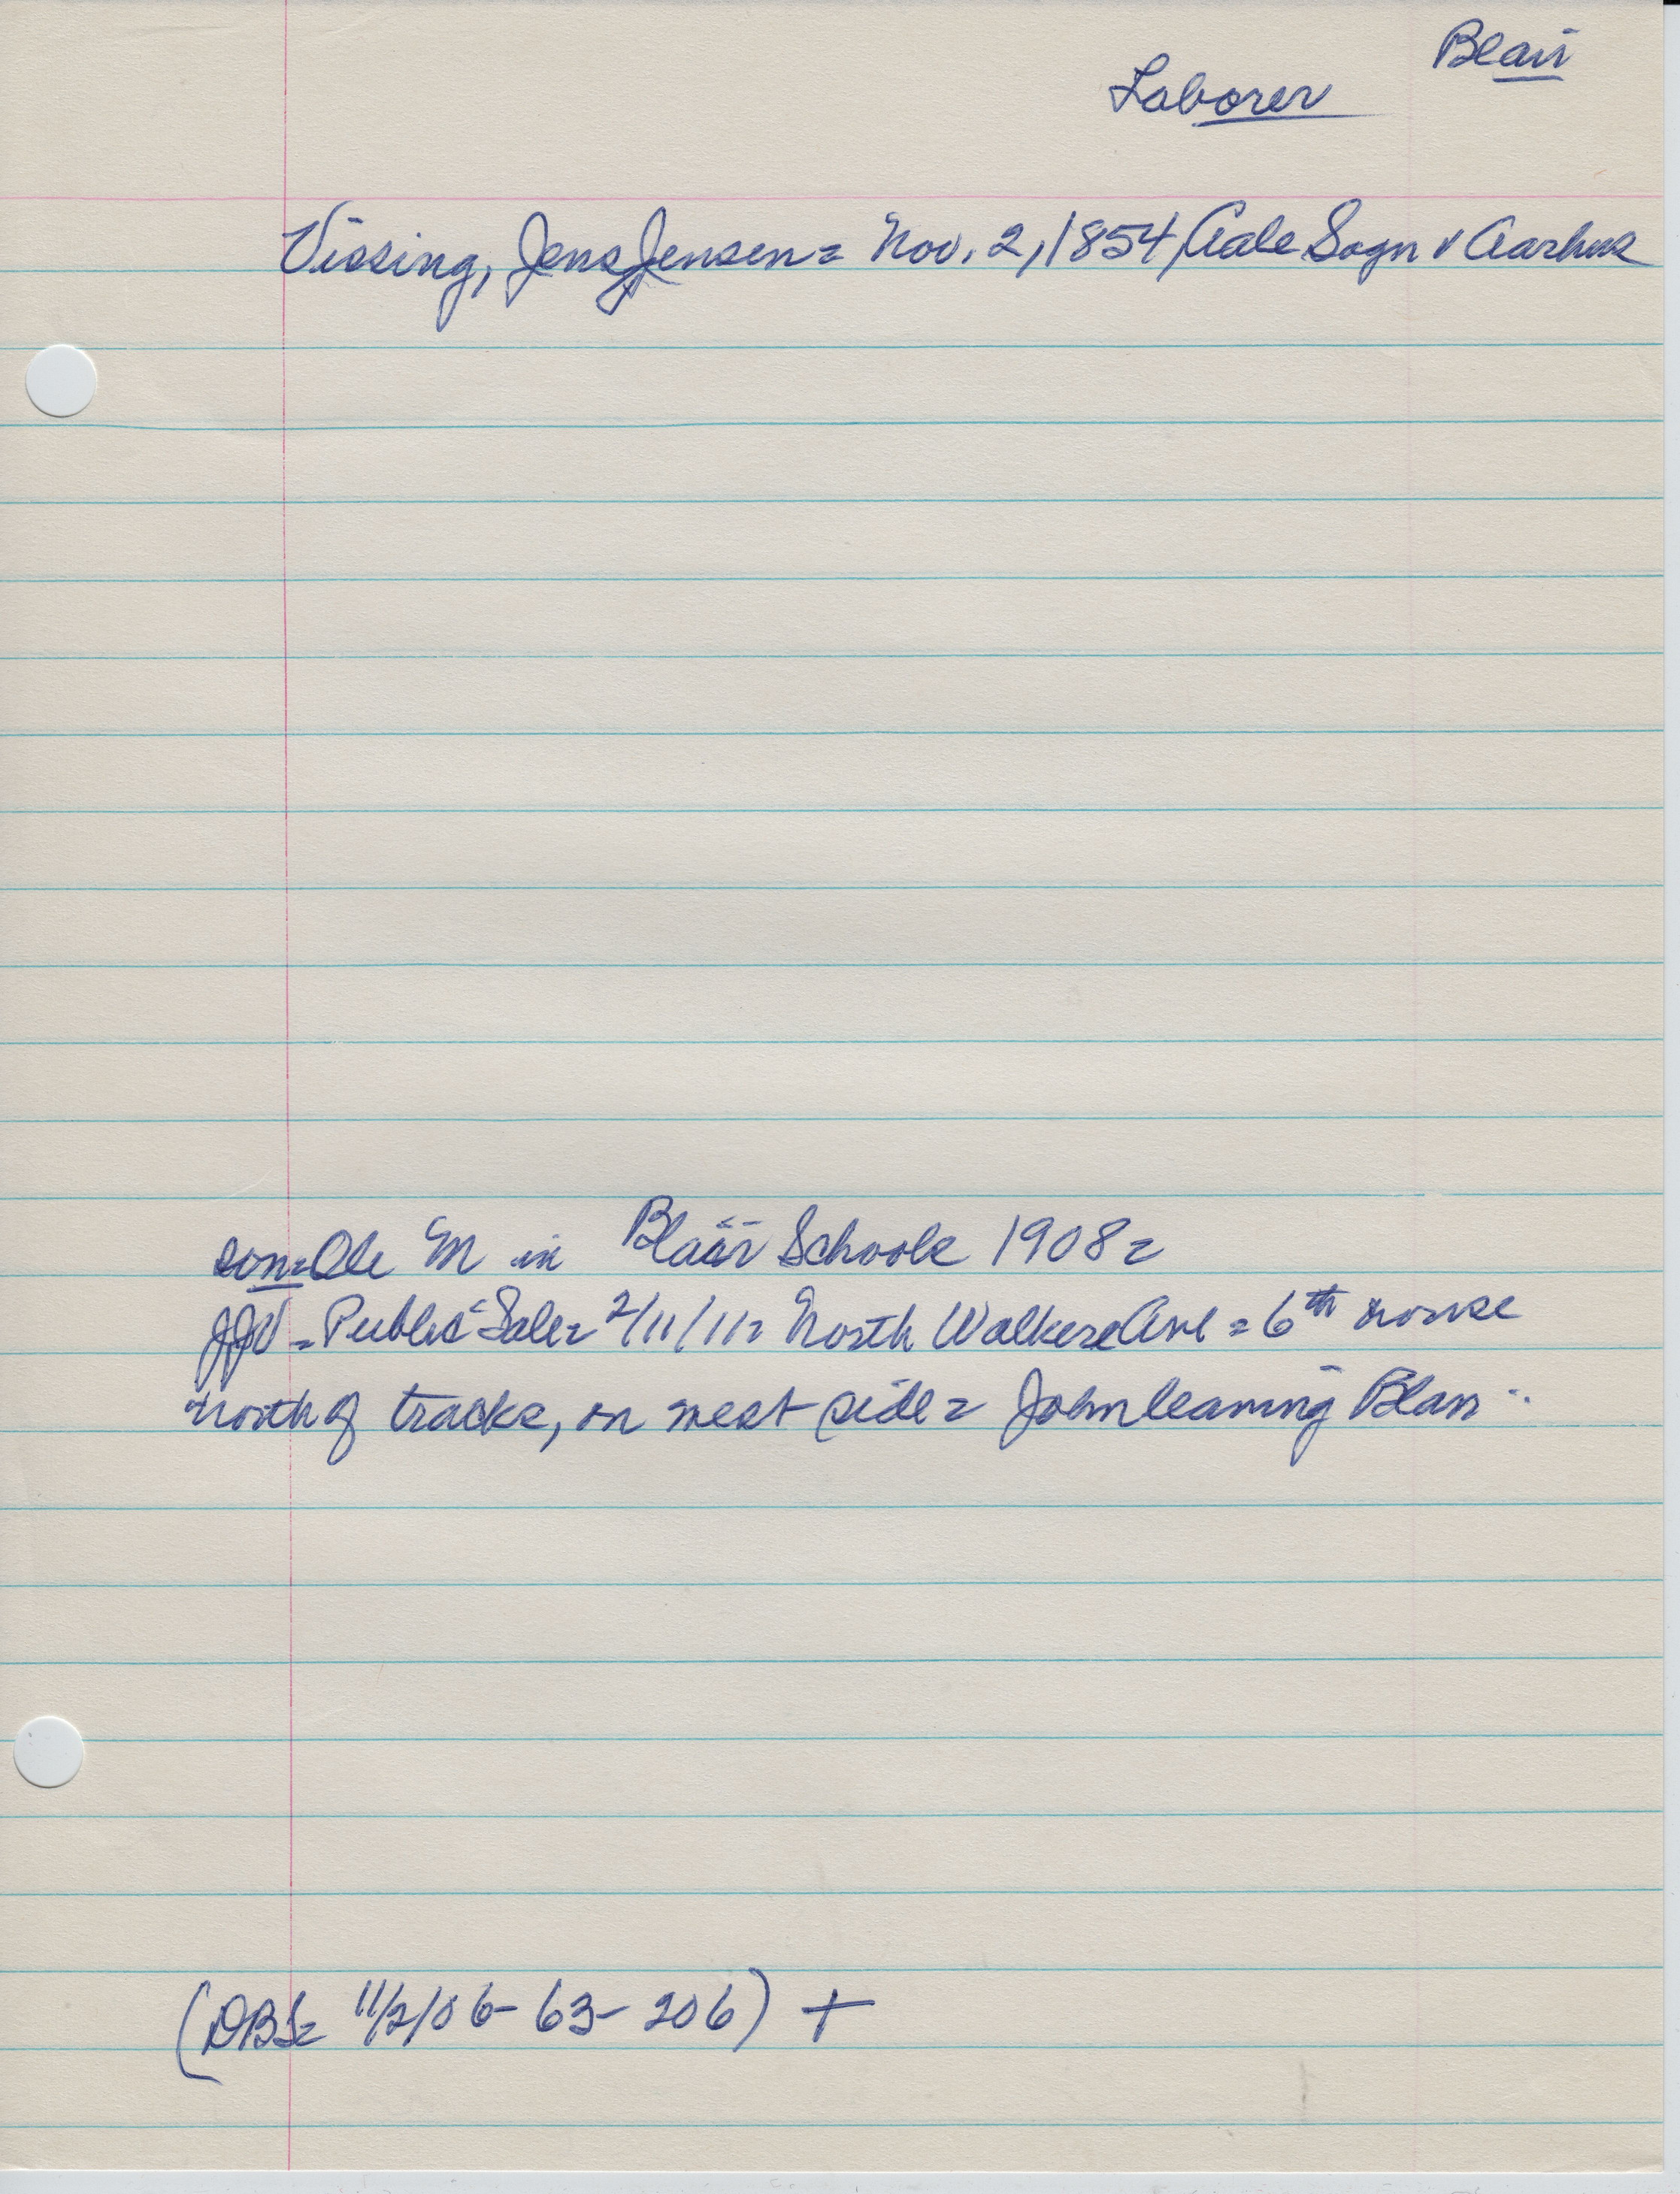 Blair
Laborer
Vissing, Jens Jensen = Nov. 2, 1854, Aale Sogn v Aarhus
son = Ole M in Blair Schools 1908 =
JJV = Public Sale = 2/11/11 = North Walker Ave = 6th house
north of tracks, on west side = John leaving Blair
(DBS = 11/2/06 - 63 - 206) +